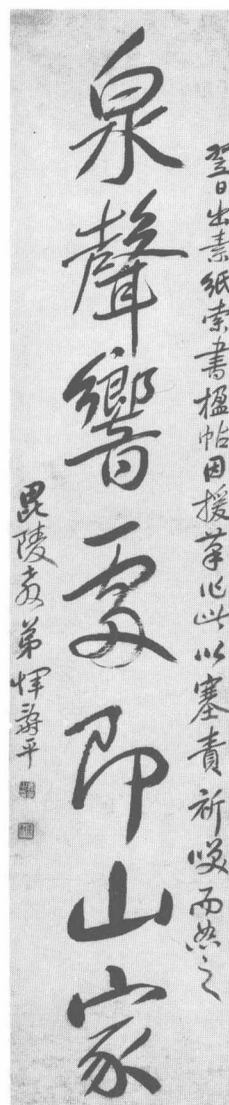 翌日出素紙索書楹帖因援筆作此以塞責祈哂而與之
泉聲響處即山家
毘陵教弟惲壽平